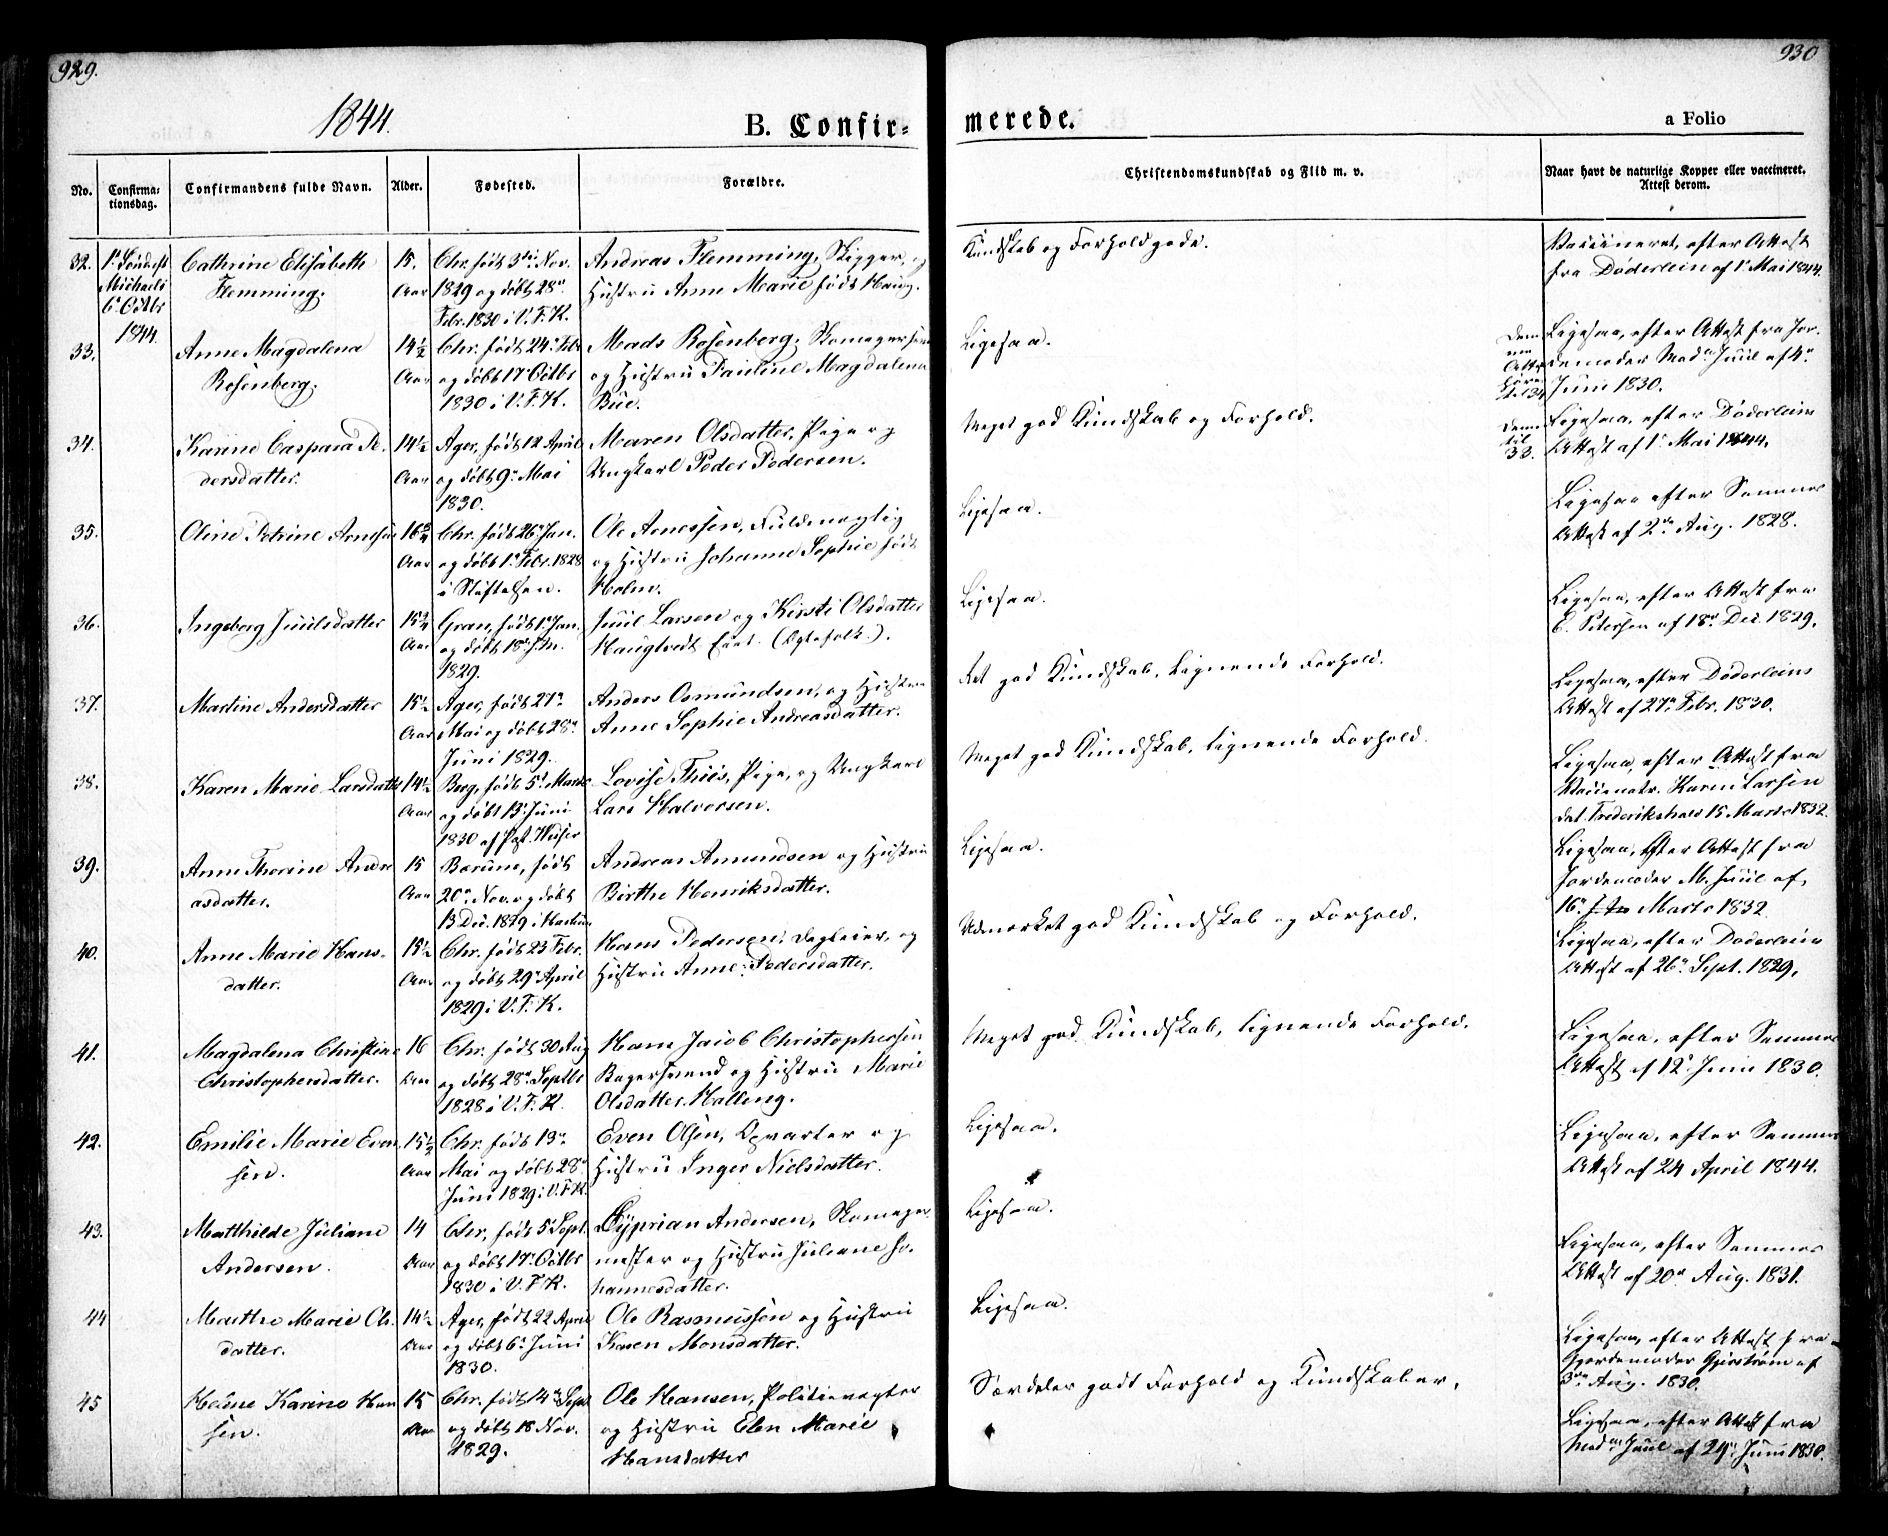 929.
1844.
B. Confir-
No. Confirma-
tionsdag. Confirmandens fulde Navn. Alder. Fødested. Forældre.
32. Cathrine Elisabeth 15. Chr. født 3die Nov. Andreas Flemming, Skigger, og
Michaeli Flemming. Aar 1829 og døbt 28de Hustru Anne Marie født Haug.
6te Octbr Febr. 1830 i V. F. K.
1844.
33. Anne Magdalena 14½ Chr. født 24de Febr Mads Rosenberg, Skomagersvend
Rosenberg. Aar og døbt 17de Octbr og Hustru Pauline Magdalena
1830 i V. F. K. Bue.
34. Karine Caspara Pe- 14½ Ager, født 12 April Maren Olsdatter, Pige og
dersdatter. Aar og døbt 9de Mai Ungkarl Peder Pedersen.
1830.
35. Oline Petrine Arnesen 16¾ Chr. født 26 Jan. Ole Arnessen, Fuldmægtig
Aar og døbt 1ste Febr. 1828 og Hustru Johanne Sophie født
i Stiftelsen. Holm.
36. Ingeborg Juulsdatter 15¾ Gran, født 1ste Jan. Juul Larsen og Kirsti Olsdatter
Aar og døbt 18de J.M. Haugtvedt Eiet. (Ægtefolk.).
1829.
37. Martine Andersdatter 15½ Ager, født 27de Anders Osmundsen, og Hustru
Aar Mai og døbt 28de Anne Sophie Andreasdatter.
Juni 1829.
38. Karen Marie Larsdatter 14½ Berg, født 5te Marts Lovise Thies, Pige, og Ungkarl
Aar og døbt 13de Juni Lars Halvorsen.
1830 af Pst. Wulfsr
39. Anne Thorine Andre 15 Bærum, født Andreas Amundsen og Hustru
asdatter. Aar 20de Nov. og døbt Birthe Henriksdatter.
13 Dec. 1829 i Haslum
40. Anne Marie Hans- 15½ Chr. født 23 Febr. Hans Pedersen, Dagleier, og
datter. Aar og døbt 29de April Hustru Anne Pedersdatter.
1829 i V. F. K.
41. Magdalena Christine 16 Chr. født 30 Aug Hans Jacob Christophersen
Christophersdatter. Aar og døbt 28de Septbr Bagersvend og Hustru Marie
1828 i V. F. K. Olsdatter Halling.
42. Emilie Marie Even 15½ Chr. født 13de Even Olsen, Opvarter og
sen. Aar Mai og døbt 28de Hustru Inger Nielsdatter.
Juni 1829 i V. F. K.
43. Matthilde Juliane 14 Chr. født 5te Sept. Cyprian Andersen, Skomager
Andersen. Aar og døbt 17de Octbr mester og Hustru Juliane Jo-
1830 i V. F. K. hannesdatter.
44 Marthe Marie Ols 14½ Ager, født 22 April Ole Rasmussen og Hustru
datter. Aar og døbt 6te Juni Karen Monsdatter.
1830.
45 Helene Karine Han 15 Chr. født 14de Sept Ole Hansen, Politievægter
sen. Aar og døbt 18 Nov. og Hustru Elen Marie
1829. Hansdatter
930
merede.
a Folio
Christendomskundskab og Flid m. v. Naar havt de naturlige Kopper eller vaccineret.
Attest derom.
Kundskab og Forhold gode. Vaccineret, efter Attest
fra Døderlein af 1ste Mai 1844.
Ligesaa. Ligesaa, efter Attest fra Jor-
demoder Mad. Juul af
Juni 1830.
Meget god Kundskab og Forhold. Ligesaa, efter Døderleins
Attest af 1ste Mai 1844.
Ligesaa. Ligesaa efter Sammes
Attest af 2den Aug. 1828.
Ligesaa. Ligesaa, efter Attest fra
E. Petersen af 18de Dec. 1829.
Ret god Kundskab, lignende Forhold. Ligesaa, efter Døderleins
Attest af 27de Febr. 1830.
Meget god Kundskab, lignende Forhold. Ligesaa, efter Attest fra
Vaccinatr. Karen Larsen
dat. Frederikshald 15 Marts 1832.
Ligesaa. Ligesaa, efter Attest fra
Jordemoder M. Juul af
16de Marts 1832
Udmærket god Kundskab og Forhold. Ligesaa, efter Døderleins
Attest af 26de Sept. 1829.
Meget god Kundskab, lignende Forhold. Ligesaa, efter Sammes
Attest af 12te Juni 1830.
Ligesaa. Ligesaa, efter Sammes
Attest af 24 April 1844.
Ligesaa. Ligesaa, efter Sammes
Attest af 20de Aug. 1831.
Ligesaa. Ligesaa, efter Attest fra
Gjordemoder
3die Aug. 1830.
Særdeles godt Forhold og Kundskaber. Ligesaa, efter Attest fra
Mad. Juul af 29de Juni 1830.